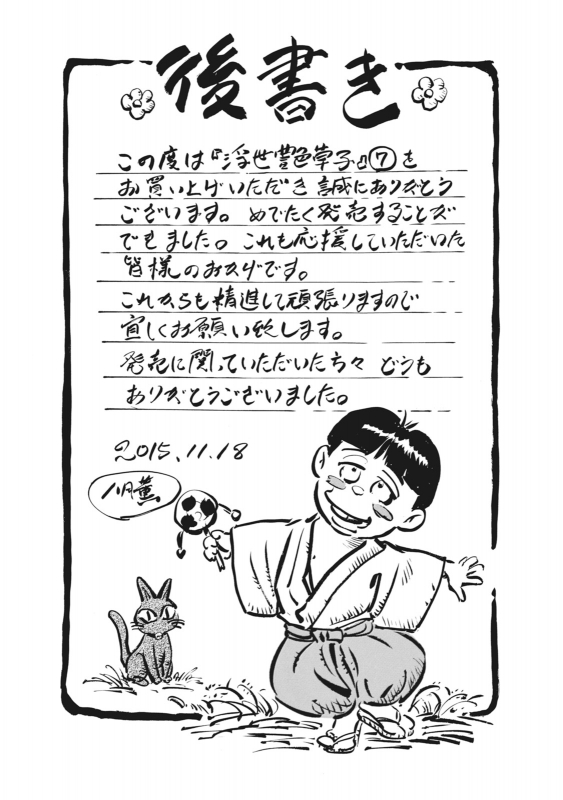 後書き
この度は『浮世艶草子』⑦を
お買い上げいただき誠にありがとう
ございます。めでたく発売することが
できました。これも応援していただいた
皆様のおかげです。
これからも精進して頑張りますので
宜しくお願い致します。
発売に関していただいた方々 どうも
ありがとうございました。
2015.11.18
八月薫